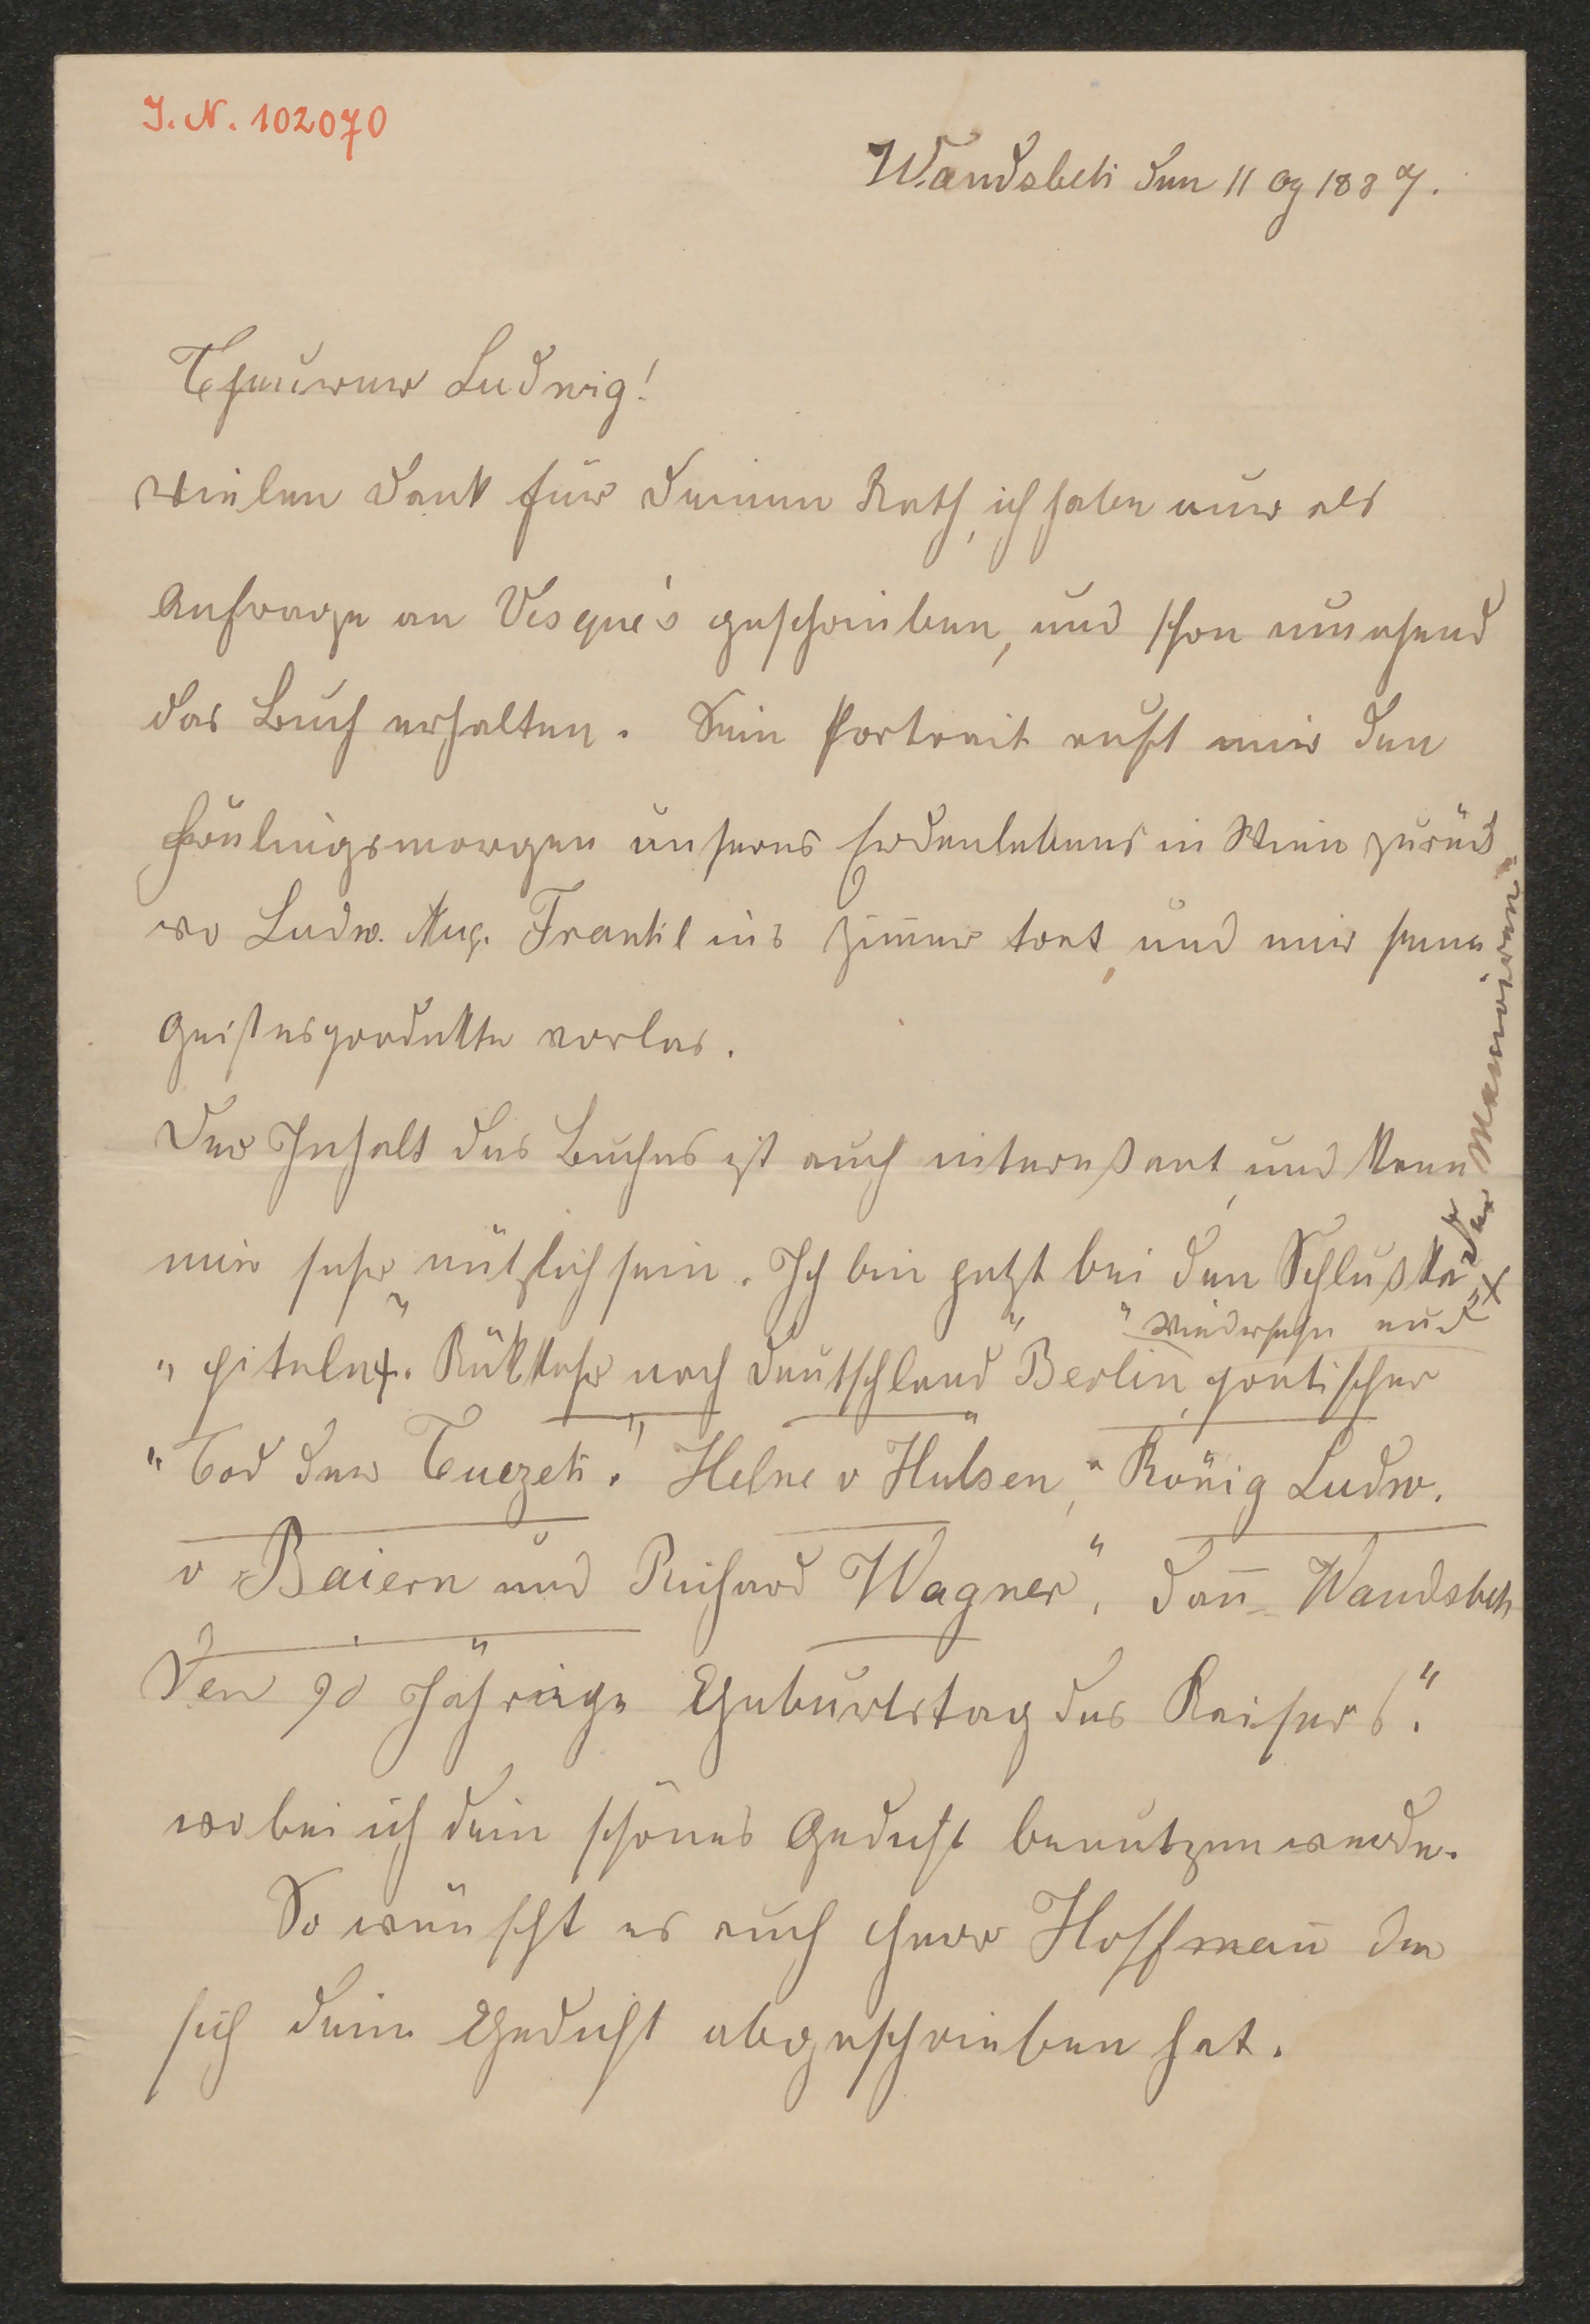 J. N. 102070
Wandsbek den 11 9 1887.
Theurer Ludwig!
vielen Dank für deinen Rath, ich habe nur als
Anfrage an Vesque's geschrieben, und schon umgehend
das Buch erhalten. Sein Portrait ruft mir den
Frülingsmorgen unseres Erdenlebens in Wien zurück
wo Ludw. Aug. Frankl ins Zimmer trat, und mir seine
Geistesprodukte vorlas.
Der Inhalt des Buches ist auch intereßant, und kann
mir sehr nützlich sein. Ich bin jetzt bei den Schlußka
"piteln+. Rükkehr nach Deutschland" Berlin, poetischer
"Wiedersehn und
"Tod der Tuczek". Helne v Hulsen, "König Ludw.
v Baiern und Richard Wagner", dañ Wandsbek
Den 90 Jährige Geburtstag des Kaisers."
wobei ich dein schönes Gedicht benutzen werde.
So wünscht es auch Herr Hoffmañ der
sich dein Gedicht abgeschrieben hat.
+ der Memoiren"